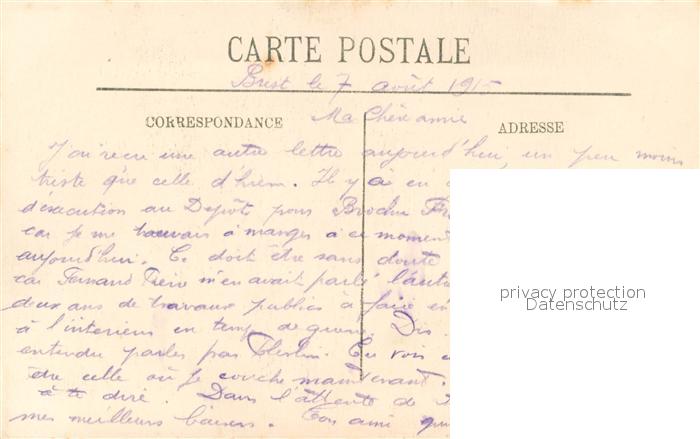 CARTE POSTALE
Brest le 7 août 1915
CORRESPONDANCE
Ma Chère amie
ADRESSE
J'ai recu une autre lettre aujourd'hui, un peu moins
triste que celle d'hier. Il y a en
d'exécution au Depôt pour
car je me trouvais à manger à ce moment
aujourd'hui. Ce doit être sans doute
car Fernand Frère m'en avait parlé l'autre
deux ans de travaux publics a faire
à l'interieur en temps de guerre. Dis
entendu parler par. Tu vois
être celle où je couche maintenant.
à te dire. Dans l'attente de
mes meilleurs baisers. Ton ami
privacy protection
Datenschutz